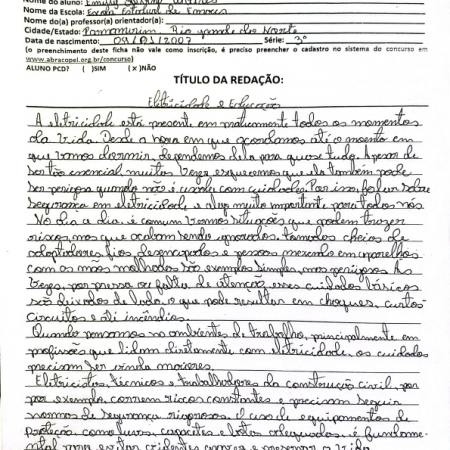 Nome do aluno: Emilly
Nome da Escola: Escola Estadual de
Nome do(a) professor(a) orientador(a):
Cidade/Estado: Parnamirim, Rio grande do Norte
Data de nascimento: 09/01/2007 Série: 3°
(o preenchimento desta ficha não vale como inscrição, é preciso preencher o cadastro no sistema do concurso em
www.abracopel.org.br/concurso)
ALUNO PCD? ( )SIM (x)NÃO
TÍTULO DA REDAÇÃO:
Eletricidade e Educação
A eletricidade está presente em praticamente todos os momentos
da vida. Desde a hora em que acordamos até o moento em
que vamos dormir, dependemos dela para quase tudo. Apesar de
ser tão essencial, muitas vezes esquecemos que ela também pode
ser perigosa quando não é usada com cuidado. Por isso, falar sobre
segurança em eletricidade é algo muito importante para todos nós.
No dia a dia, é comum vermos situações que podem trazer
riscos mas que acabam sendo ignorados. tomadas cheias de
adaptadores, fios desencapados e pessoas mexendo em aparelhos
com as mãos molhadas são exemplos simples, mas perigosos. Às
vezes, por pressa ou falta de atenção, esses cuidados básicos
são deixados de lado, o que pode resultar em choques, curtos
circuitos e até incêndios.
Quando pensamos no ambiente de trabalho, principalmente em
profissões que lidam diretamente com eletricidade, os cuidados
precisam ser ainda maiores.
Eletricistas, técnicos e trabalhadores da construção civil, por
por exemplo, correm riscos constantes e precisam seguir
normas de segurança rigorosas. O uso de equipamentos de
proteção, como luvas, capacetes e botas adequadas, é fundame-
ntal para evitar acidentes graves e preservar a vida.